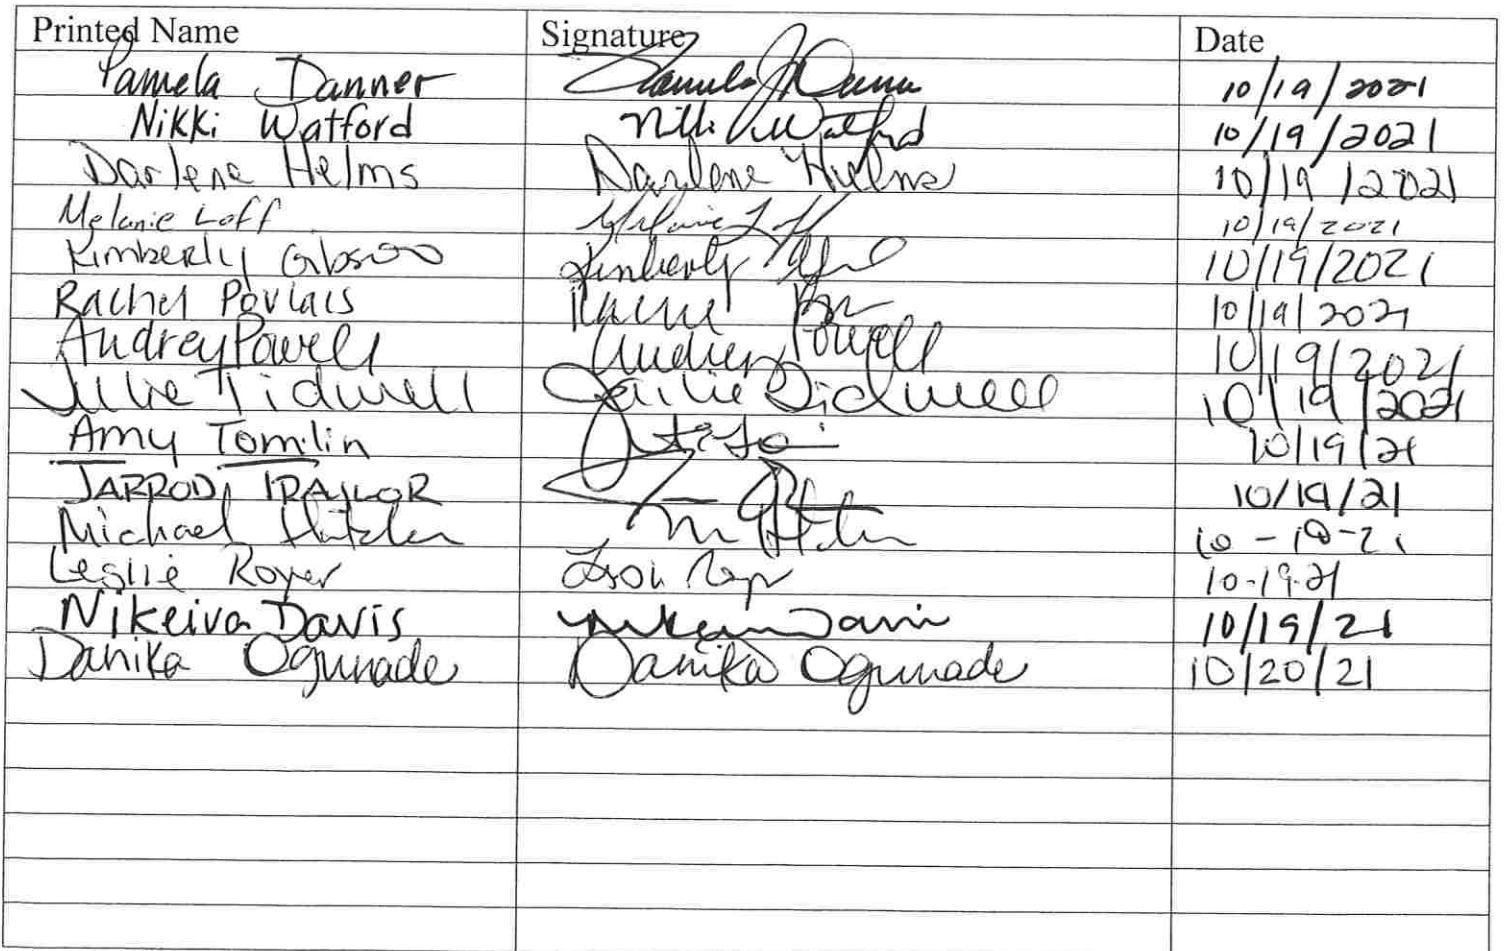 Printed Name Signature Date
Pamela Danner Pamela J Danner 10/19/2021
Nikki Watford Nikki Watford 10/19/2021
Darlene Helms Darlene Helms 10/19/2021
Melanie Loff Melanie Loff 10/19/2021
Kimberly Gibson Kimberly 10/19/2021
Rachel Povlais Rachel 10/19/2021
Audrey Powell Audrey Powell 10/19/2021
Julie Tidwell Julie Tidwell 10/19/2021
Amy Tomlin 10/19/21
JARROD TRAYLOR 10/19/21
Michael 10-19-21
Leslie Royer 10-19-21
Nikeiva Davis Davis 10/19/21
Danika Ogunade Danika Ogunade 10/20/21